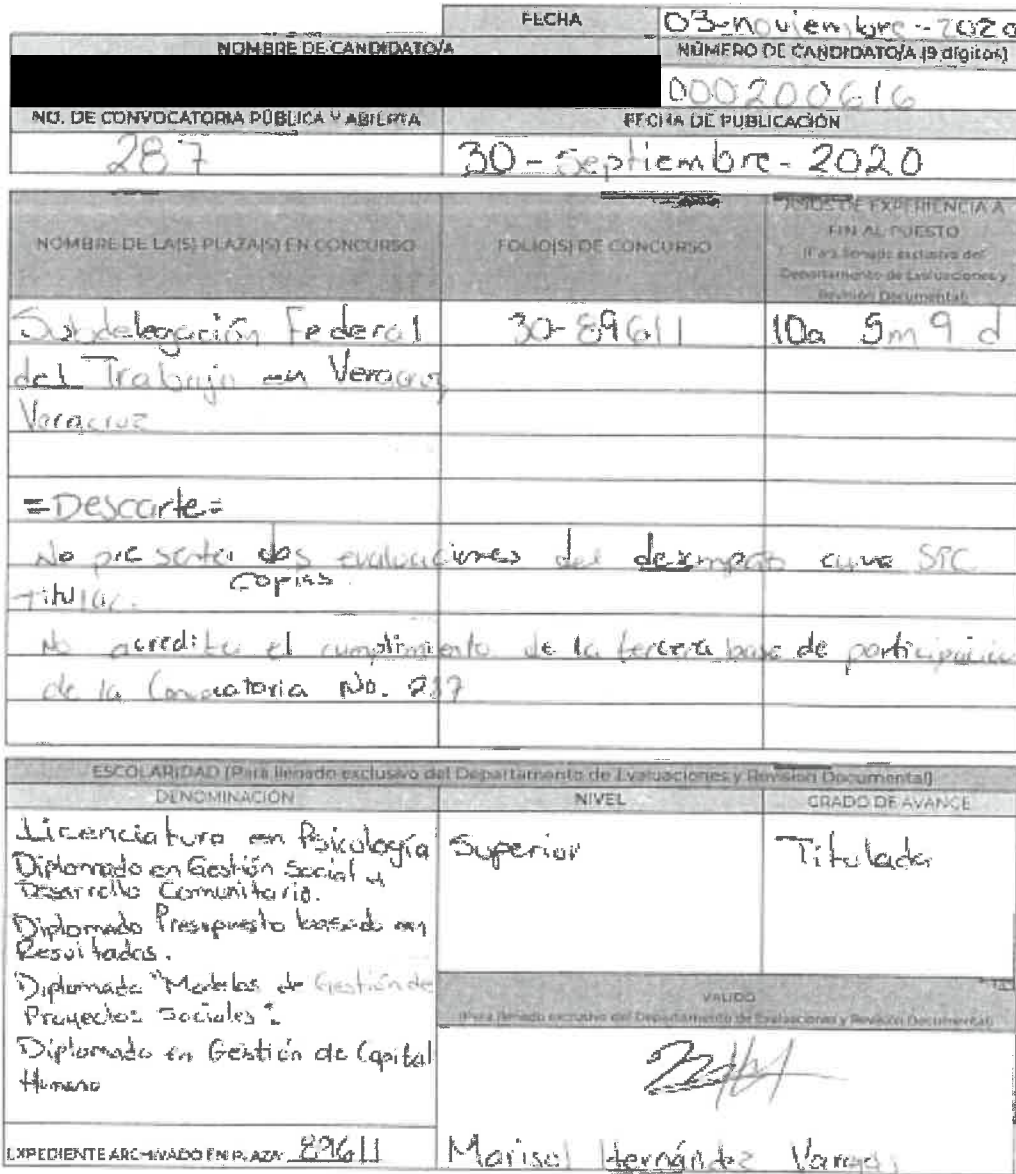 FECHA
03-noviembre-2020
NOMBRE DE CANDIDATO/A
NÚMERO DE CANDIDATO/A (9 dígitos)
000200616
NO. DE CONVOCATORIA PÚBLICA Y ABIERTA
FECHA DE PUBLICACIÓN
287
30-Septiembre-2020
NOMBRE DE LA(S) PLAZA(S) EN CONCURSO
FOLIO(S) DE CONCURSO
AÑOS DE EXPERIENCIA A
FIN AL PUESTO
(Para llenado exclusivo del
Departamento de Evaluaciones y
Revisión Documental)
Subdelegación Federal
30-89611
10a 5m 9 d
del Trabajo en Veracruz
Veracruz
=Descarte=
No presenta dos evaluaciones del desempeño como SPC
copias
Titular.
No acredita el cumplimiento de la tercera base de participación
de la Convocatoria No. 287
ESCOLARIDAD (Para llenado exclusivo del Departamento de Evaluaciones y Revisión Documental)
DENOMINACIÓN
NIVEL
GRADO DE AVANCE
Licenciatura en Psicología
Superior
Titulada
Diplomado en Gestión Social y
Desarrollo Comunitario.
Diplomado Presupuesto basado en
Resultados.
Diplomado "Modelos de Gestión de
Proyectos Sociales".
Diplomado en Gestión de Capital
Humano
VALIDÓ
(Para llenado exclusivo del Departamento de Evaluaciones y Revisión Documental)
EXPEDIENTE ARCHIVADO EN PLAZA: 89611
Marisol Hernández Vargas